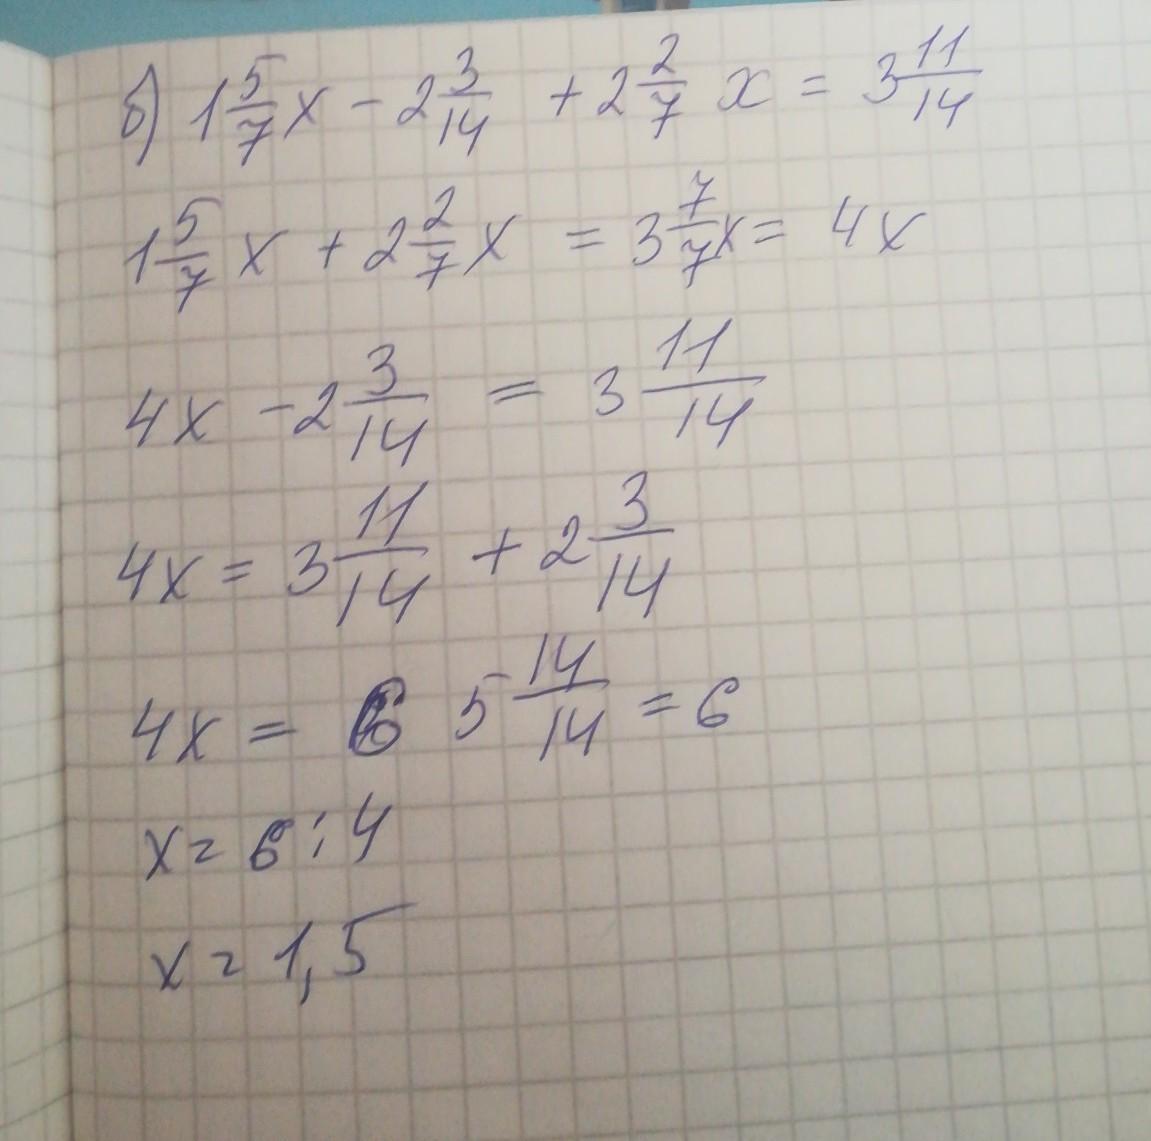 б) 1 5/7 x - 2 3/14 + 2 2/7 x = 3 11/14
1 5/7 x + 2 2/7 x = 3 7/7 x = 4x
4x - 2 3/14 = 3 11/14
4x = 3 11/14 + 2 3/14
4x = 6 5 14/14 = 6
x = 6 : 4
x = 1,5